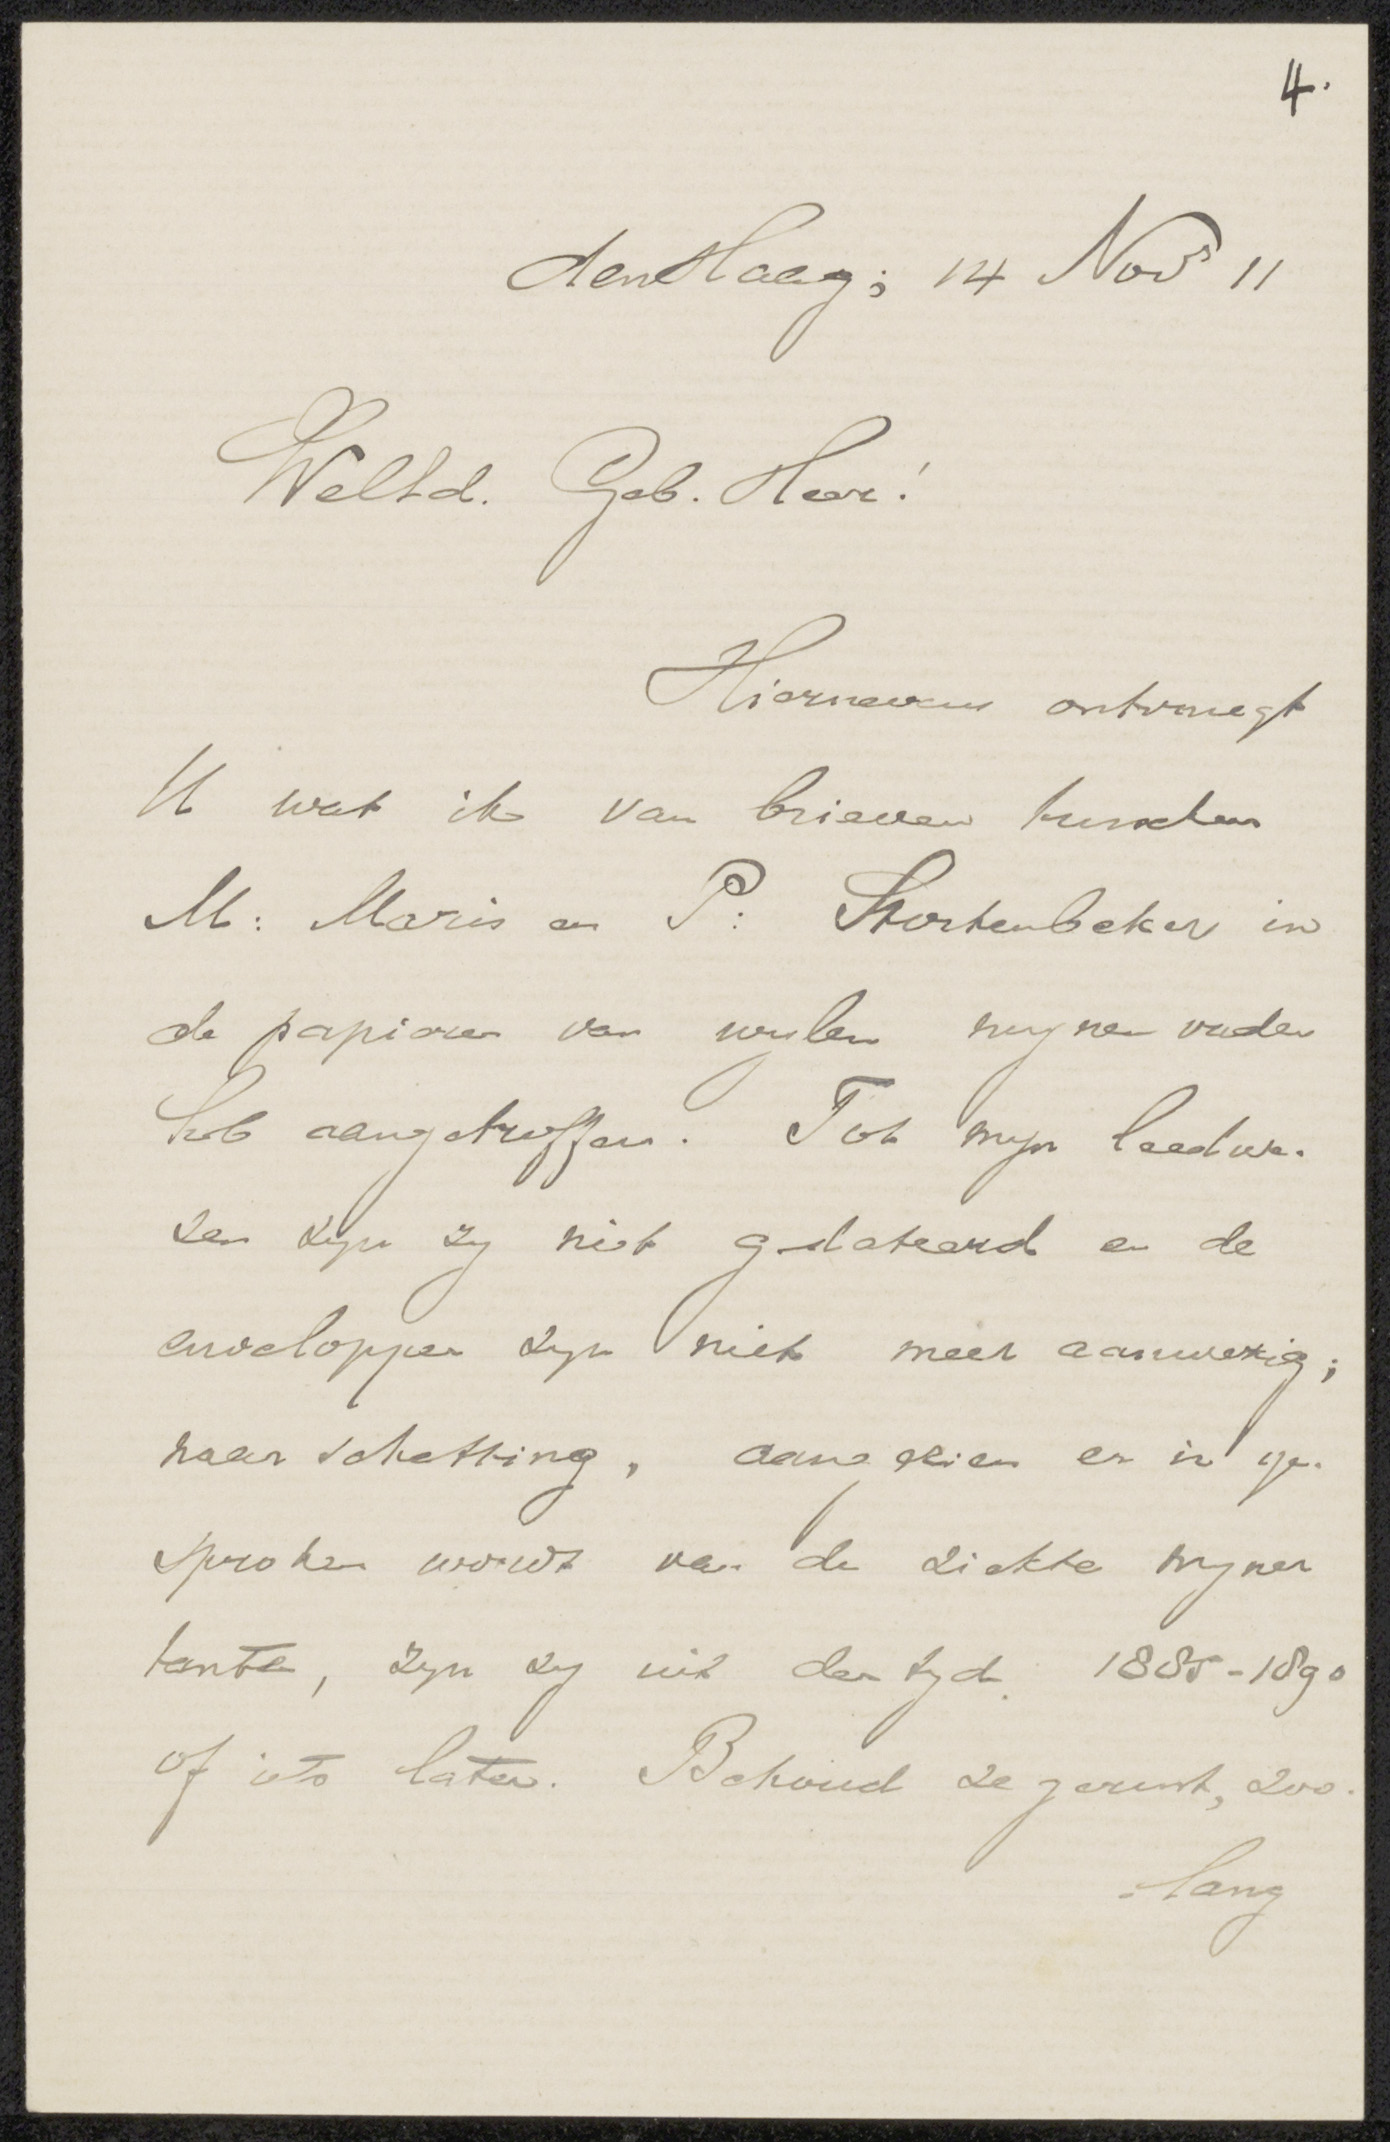 4.
den Haag; 14 Nov 11
WelEd. Geb. Heer!
Hiernevens ontvangt
U wat ik van brieven tusschen
M: Maris en P: Stortenbeker in
de papieren van wylen mynen vader
heb aangetroffen. Tot myn leedwe-
zen zyn zy niet gedateerd en de
enveloppen zyn niet meer aanwezig;
naar schatting, aangezien er in ge-
sproken wordt van de ziekte myner
tante, zyn zy uit den tyd 1885-1890
of iets later. Behoud ze gerust, zoo-
lang